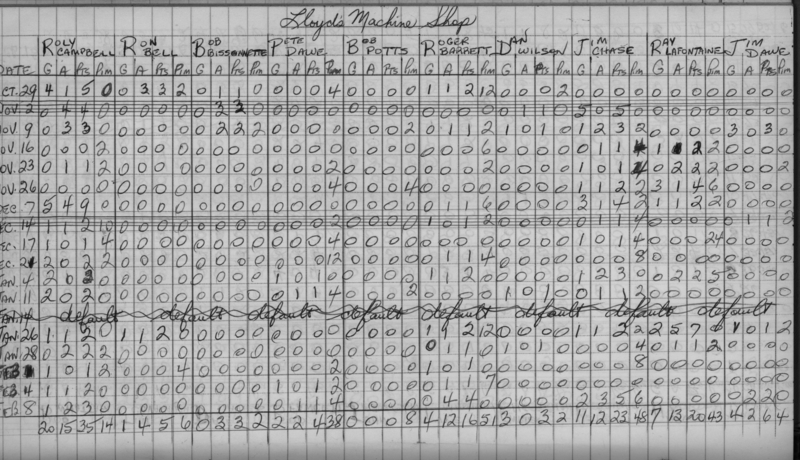 Lloyd's Machine Shop
ROLY CAMPBELL RON BELL BOB BISSONNETTE PETE DAWE BOB POTTS ROGER BARRETT DAN WILSON JIM CHASE RAY LAFONTAINE JIM DAWE
DATE G A Pts Pim G A Pts Pim G A Pts Pim G A Pts Pim G A Pts Pim G A Pts Pim G A Pts Pim G A Pts Pim G A Pts Pim G A Pts Pim
OCT. 29 4 1 5 0 0 3 3 2 0 1 1 0 0 0 0 4 0 0 0 0 1 1 2 12 0 0 0 2
NOV. 2 0 4 4 0 0 0 0 0 0 3 3 0 0 0 0 0 0 0 0 0 0 0 0 0 0 1 1 0 5 0 5 0
NOV. 9 0 3 3 0 0 0 0 0 0 2 2 2 0 0 0 0 0 0 0 2 0 1 1 2 1 0 1 0 1 2 3 2 0 0 0 0 3 0 3 0
NOV. 16 0 0 0 2 0 0 0 0 0 0 0 0 0 0 0 0 0 0 0 0 0 0 0 6 0 0 0 0 0 1 1 4 1 1 2 2 0 0 0 0
NOV. 23 0 1 1 2 0 0 0 0 0 0 0 0 0 0 0 2 0 0 0 0 0 0 0 2 0 0 0 0 1 0 1 4 0 2 2 2 0 0 0 2
NOV. 26 0 0 0 0 0 0 0 0 0 0 0 0 0 0 0 4 0 0 0 4 0 0 0 0 0 0 0 0 1 1 2 2 3 1 4 6 0 0 0 0
DEC. 7 5 4 9 0 0 0 0 0 0 0 0 0 0 0 0 0 0 0 0 0 0 1 1 6 0 0 0 0 3 1 4 2 1 1 2 2 0 0 0 0
DEC. 14 1 1 2 0 0 0 0 0 0 0 0 0 0 0 0 2 0 0 0 0 1 0 1 2 0 0 0 0 0 1 1 4 0 0 0 0 0 1 1 2
DEC. 17 1 0 1 4 0 0 0 0 0 0 0 0 0 0 0 4 0 0 0 0 0 0 0 0 0 0 0 0 1 0 1 4 0 0 0 24 0 0 0 0
DEC. 21 2 0 2 2 0 0 0 0 0 0 0 0 0 0 0 12 0 0 0 0 0 1 1 4 0 0 0 0 0 0 0 8 0 0 0 0 0 0 0 0
JAN. 4 2 0 2 0 0 0 0 0 0 0 0 0 1 0 1 0 0 0 0 0 1 1 2 0 0 0 0 0 1 2 3 0 0 2 2 5 0 0 0
JAN 11 2 0 2 0 0 0 0 0 0 0 0 0 0 1 1 4 0 0 0 2 0 0 0 0 1 0 1 0 0 1 1 2 0 0 0 0 0 0 0 0
JAN. 14 default default default default default default default default
JAN. 26 1 1 2 0 1 1 2 0 0 0 0 0 0 0 0 0 0 0 0 0 1 1 2 12 0 0 0 0 1 1 2 2 2 5 7 0 1 2
JAN. 28 0 2 2 2 0 0 0 0 0 0 0 0 0 0 0 0 0 0 0 0 0 1 1 0 1 0 1 0 0 0 0 4 0 1 1 2 0 0 0 0
FEB 1 0 1 2 0 0 0 4 0 0 0 0 0 0 0 2 0 0 0 0 1 0 1 0 0 0 0 0 0 0 8 0 0 0 0 0 0 0 0
FEB. 4 1 1 2 0 0 0 0 0 0 0 0 0 1 0 1 2 0 0 0 0 0 1 1 7 0 0 0 0 0 0 0 0 0 0 0 0 0 0 0 0
FEB. 8 1 2 3 0 0 0 0 0 0 0 0 0 0 1 1 4 0 0 0 0 0 4 4 0 0 0 0 0 2 3 5 6 0 0 0 0 0 2 2 0
20 15 35 14 1 4 5 6 0 3 3 2 2 2 4 38 0 0 0 8 4 12 16 51 3 0 3 2 11 12 23 48 7 13 20 43 4 2 6 4